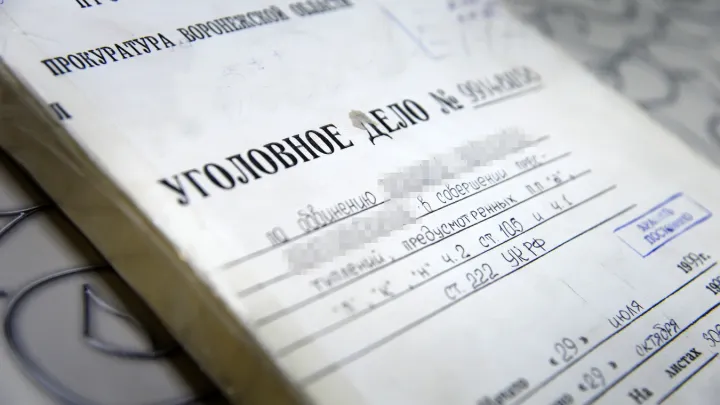 ПРОКУРАТУРА ВОРОНЕЖСКОЙ ОБЛАСТИ
УГОЛОВНОЕ ДЕЛО №
по обвинению
в совершении прес-
туплений, предусмотренных п.п. "а",
"д", "к", "н" ч.2 ст 105 и ч.1
ст. 222 УК РФ
ХРАНИТЬ
ПОСТОЯННО
«29» июля 1999г.
«29» октября
На листах